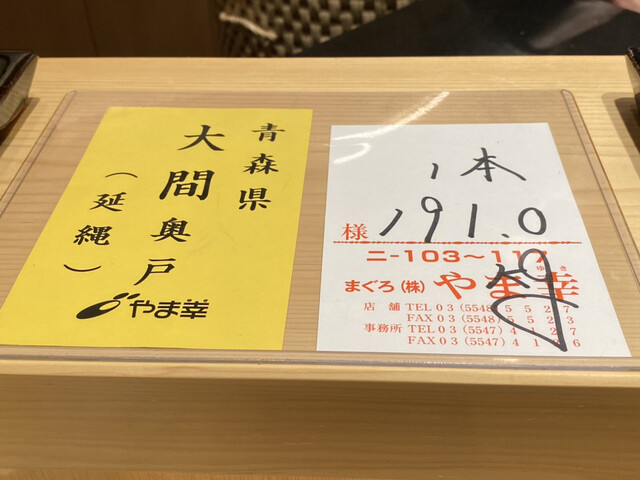 青森県
大間奥戸
(延縄)
やま幸
1本
様 191.0
ニ-103~117
まぐろ(株)やま幸
ゆき
店舗 TEL 03(5548)5527
FAX 03(5548)5523
事務所 TEL 03(5547)4127